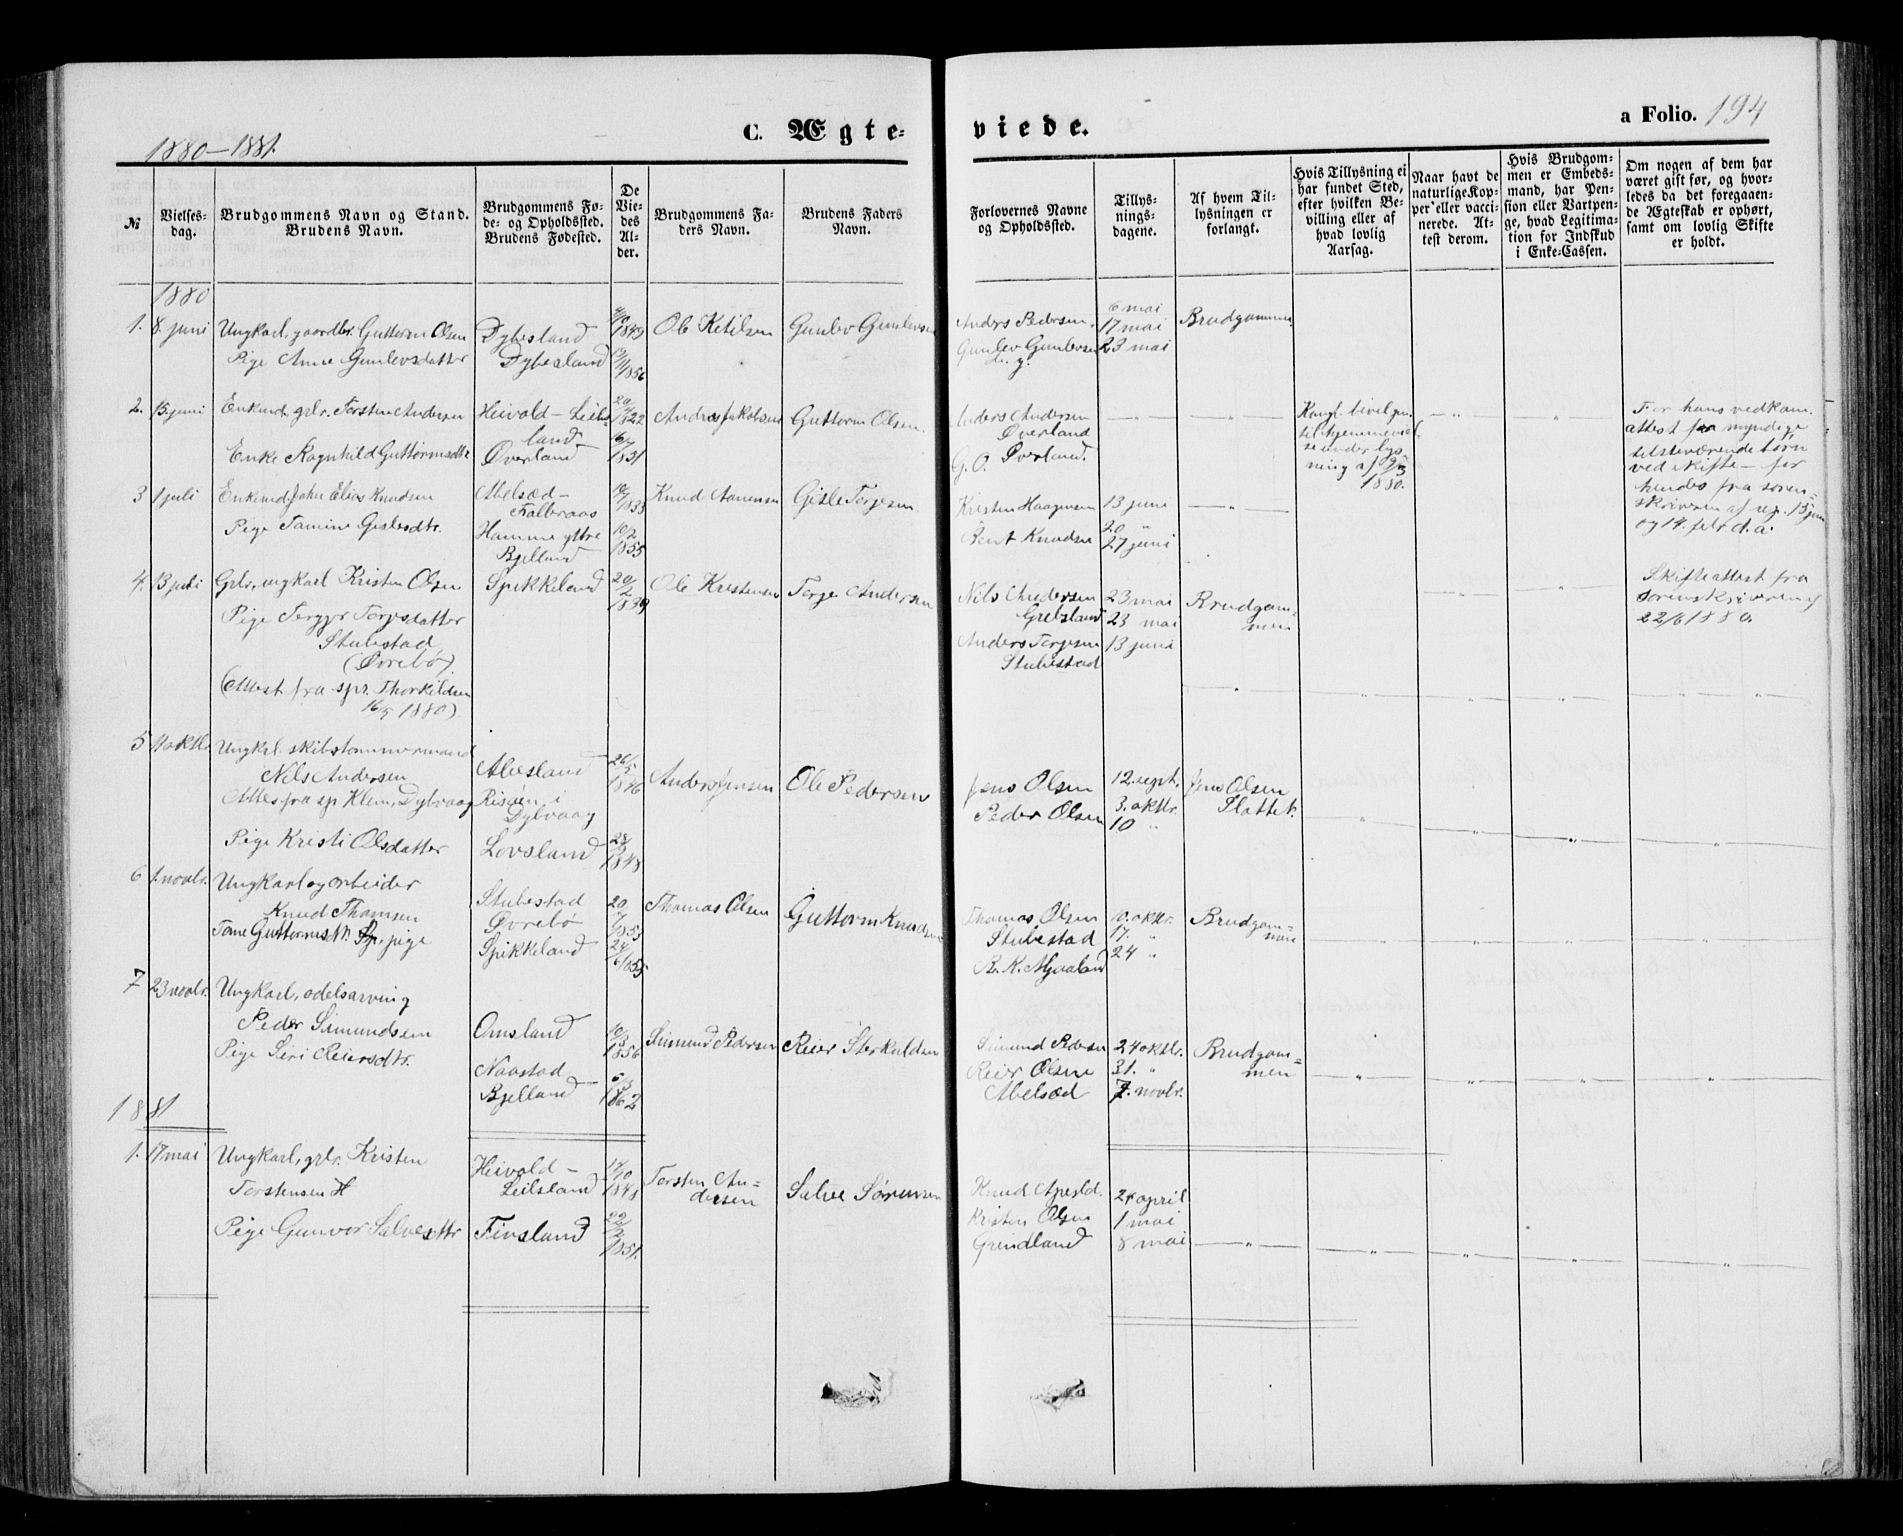 1880–1881.
C. Ægte-
viede.
a Folio. 194
№
Vielses-
dag.
Brudgommens Navn og Stand.
Brudens Navn.
Brudgommens Fø-
de- og Opholdssted.
Brudens Fødested.
De
Vie-
des
Al-
der.
Brudgommens Fa-
ders Navn.
Brudens Faders
Navn.
Forlovernes Navne
og Opholdssted.
Tillys-
nings-
dagene.
Af hvem Til-
lysningen er
forlangt.
Hvis Tillysning ei
har fundet Sted,
efter hvilken Be-
villing eller af
hvad lovlig
Aarsag.
Naar havt de
naturlige Kop-
per eller vacci-
nerede. At-
test derom.
Hvis Brudgom-
men er Embeds-
mand, har Pen-
sion eller Vartpen-
ge, hvad Legitima-
tion for Indskud
i Enke-Cassen.
Om nogen af dem har
været gift før, og hvor-
ledes da det foregaaen-
de Ægteskab er ophørt,
samt om lovlig Skifte
er holdt.
1880
1. 8 juni
Ungkarl, gaardbr. Guttorm Olsen
Pige Anne Gunlevsdatter
Dybesland
Dybesland
1849
13/11 1856
Ole Ketilsen
Gunlev Gunlevsen
Anders Pedersen.
Gunlev Gunlevsen
6 mai
17 mai
23 mai
Brudgommen
2. 15 juni
Enkem. grbr. Torsten Andersen
Enke Ragnhild Guttormsdtr
Heivold – Leils-
land
Øverland
1822
1831
Anders Jakobsen
Guttorm Olsen.
Anders Andersen
Øverland
G. O. Øverland.
Kongl. bivilgn.
til hjemmeviel-
se under lys-
ning af
1880.
For hans vedkom.
attest fra myndige
tilstedværende børn
ved skifte – for
hendes fra soren-
skriveren af
og 14. febr. d. a.
3 1 juli
Enkemd John Elias Knudsen
Pige Tamine Gislesdtr.
Abelsæd –
Falbraas
Hamme ytre
Bjelland
1833
10/2
1855
Knud Aanensen
Gisle Torjesen
Kristen Haagensen
Bent Knudsen
13 juni
20 "
27 juni
4. 13 juli
Grbr, ungkarl Kristen Olsen
Pige Torgjer Torjesdatter
Stubestad
(Øvrebø).
(Attest fra spr. Thorkildsen
16/5 1880).
Spikkeland
20/2
1839
Ole Kristensen
Torje Andersen
Nils Andersen
Grebsland
Anders Torjesen
Stubestad
23 mai
23 mai
13 juni
Brudgom-
men
Skifteattest fra
sorenskriveren af
22/6 1880.
5 oktbr
Ungkarl skibstømmermand
Nils Andersen
Attes fra sp Klem, Dybvaag
Pige Kristi Olsdatter
Abesland –
Risøen i
Dybvaag
Lovsland
26/5
1846
28/3
1848
Anders Jensen
Ole Pedersen
Jens Olsen
Peder Olsen
12. sept.
3. oktbr.
10 "
Jens Olsen
6 1. novbr.
Ungkarl og arbeider
Knud Thomsen
Tone Guttormsdtr. Sp., pige
Stubestad
Øvrebø
Spikkeland
20/7
1853
24/6 1855
Thomas Olsen
Guttorm Knudsen
Thomas Olsen
Stubestad
B. K. Mjaaland
10. oktbr.
17. "
24 "
Brudgom-
men
7 23 novbr.
Ungkarl, odelsarving
Peder Simundsen
Pige Siri Reiersdtr.
Omsland
Naastad
Bjelland
10/3
1856
6/3
1862
Simund Pedersen
Reier Sterkuldsen
Simund Pedersen
Reier Olsen
Abelsæd
24 oktbr.
31. "
7. novbr.
Brudgom-
men
1881
1. 17 mai
Ungkarl, grbr. Kristen
Torstensen H
Pige Gunvor Salvesdtr
Heivold –
Leilsland
Finsland
14/10
1848
22/2
1851.
Torsten An-
dersen
Salve Sørensen
Knud Apesld.
Kristen Olsen
Grindland
24 april
1 mai
8 mai